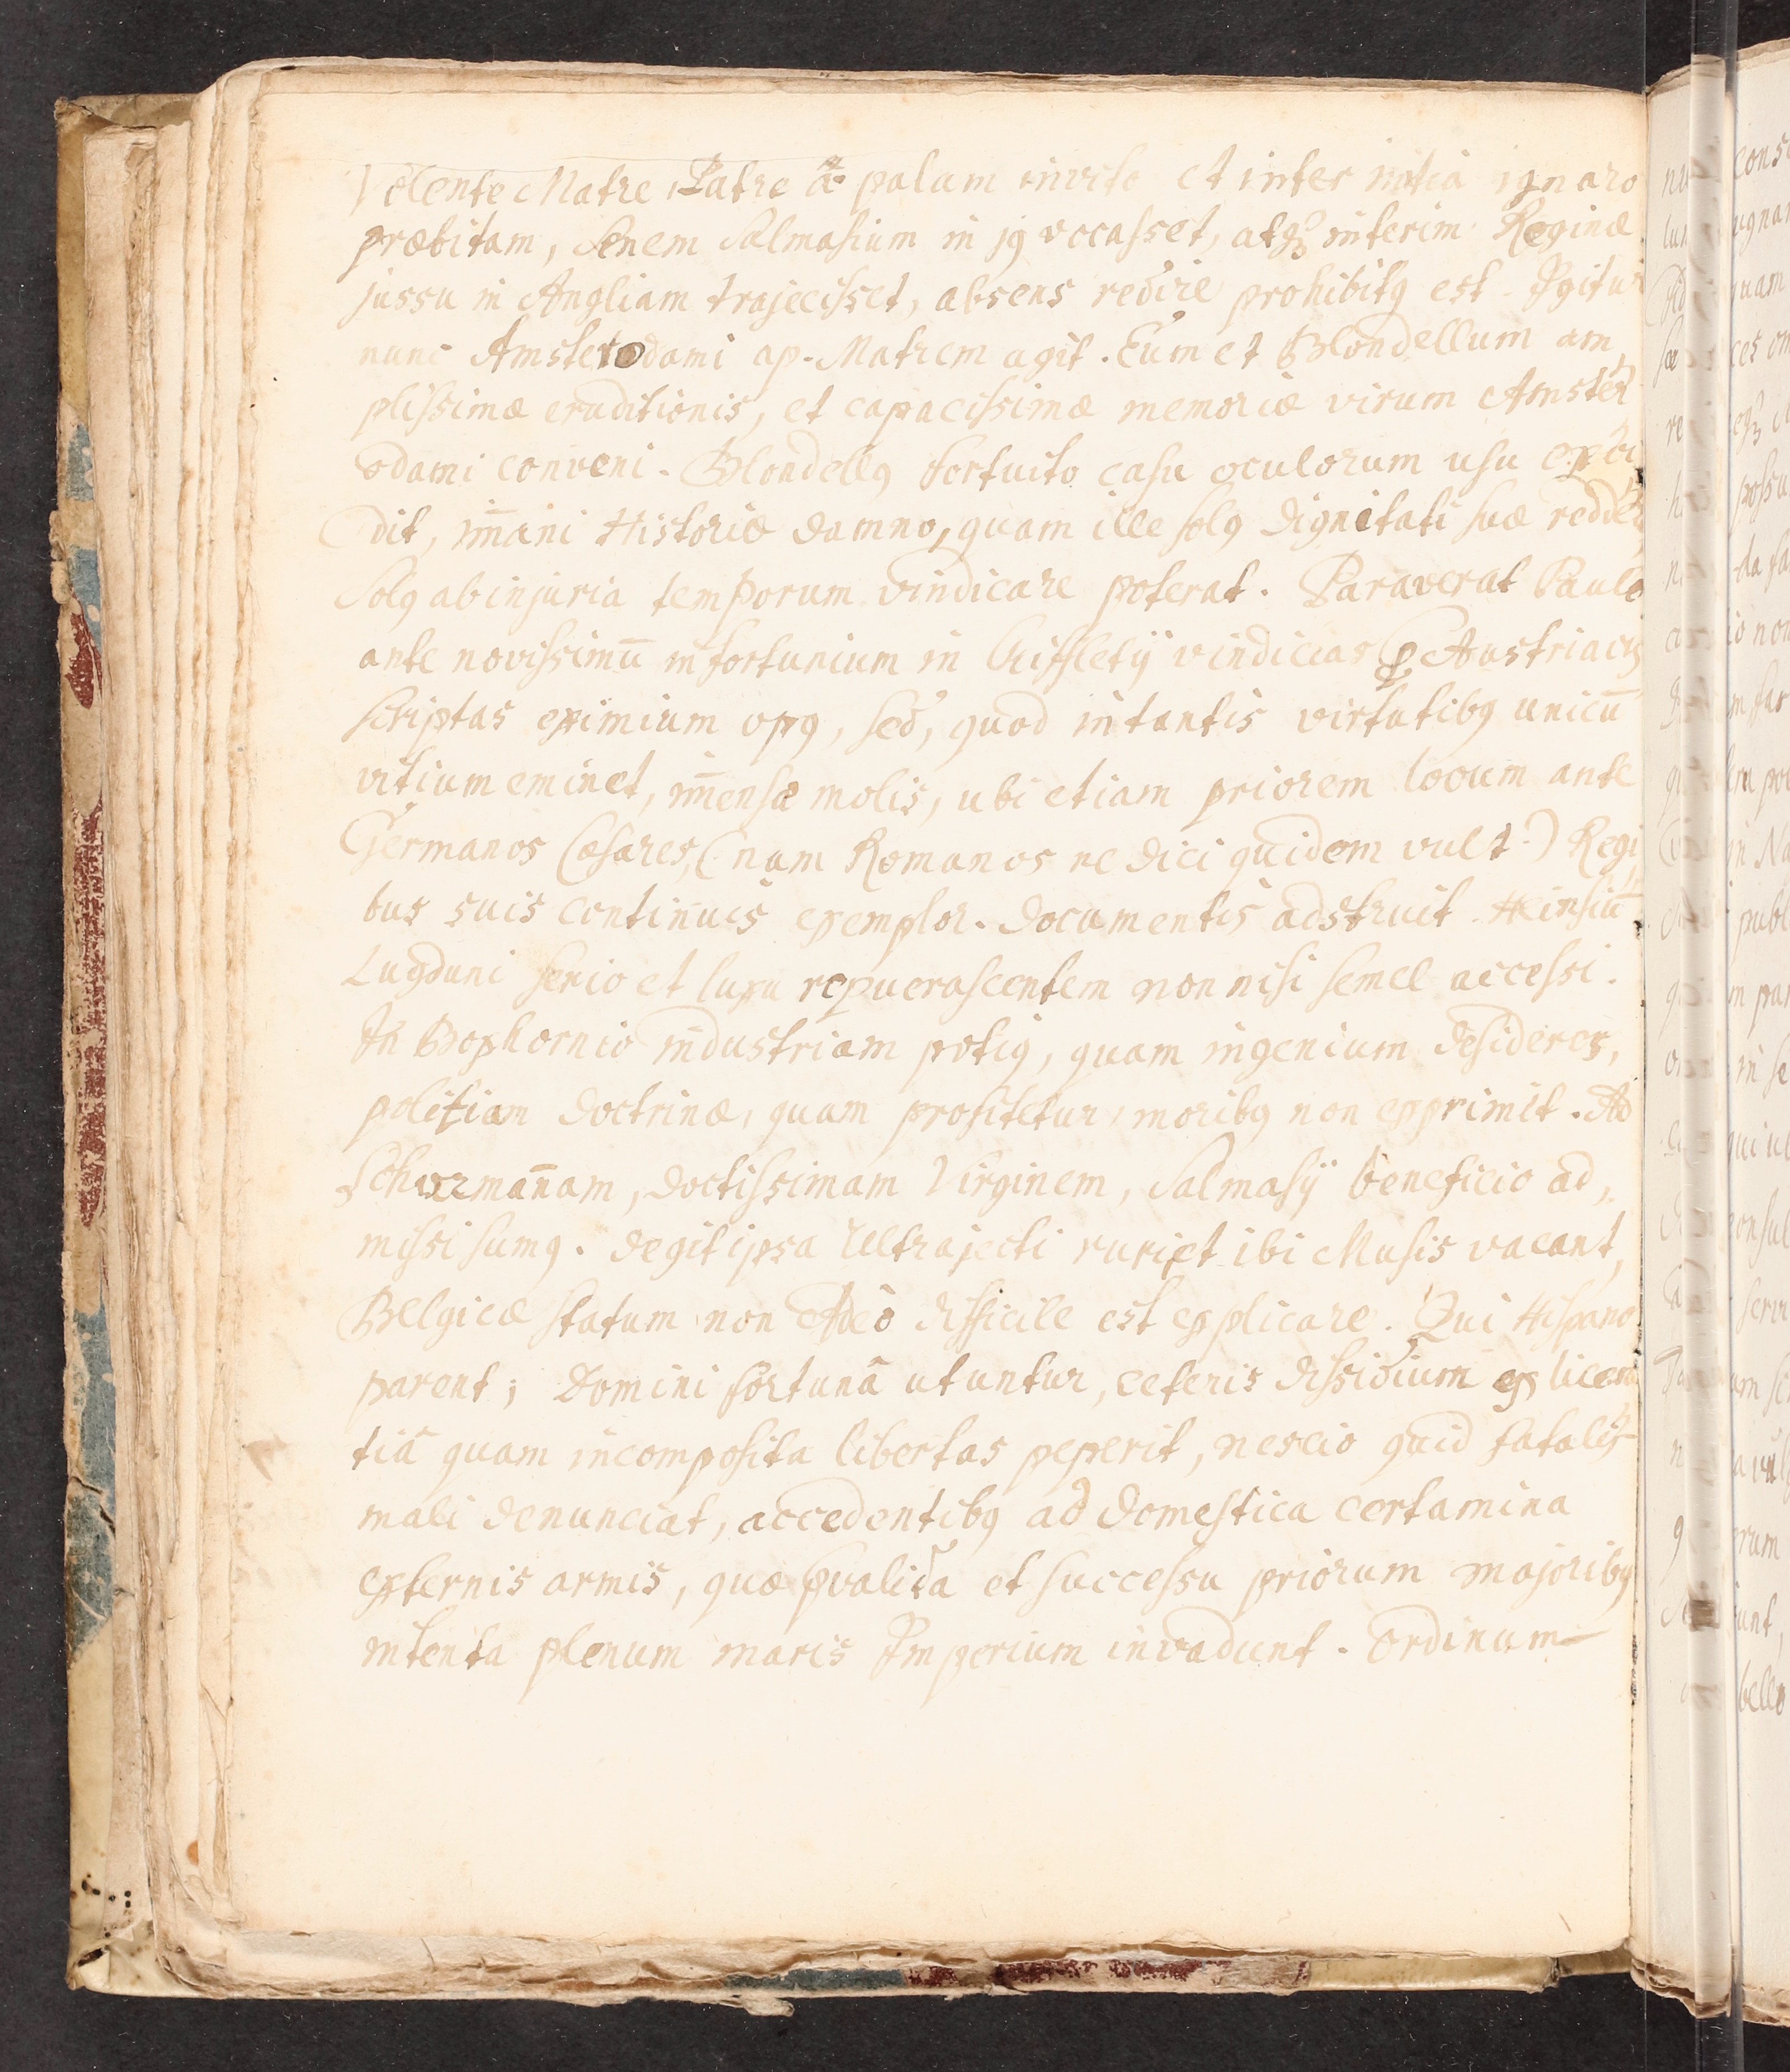 Volente Matre, Patre a͞t palam invito et inter initia ignaro
præbitam, Senem Salmasium in jꝰ vocasset, atqꝫ interim Reginæ
jussu in Angliam trajecisset, absens redire prohibitꝰ est. Igitur
nunc Amsterodami ap. Matrem agit. Eum et Blondellum am,
plissimæ eruditionis, et capacissimæ memoriæ virum Amster
odami conveni. Blondellꝰ fortuito casu oculorum usu exci
dit, im̄ani Historiæ damno, quam ille solꝰ dignitati suæ redder
solꝰ ab injuria temporum vindicare poterat. Paraverat Paulo
ante novissimū infortunium in Chiffletÿ vindicias ꝓ Austriacis
scriptas eximium opꝰ, sed, quod in tantis virtutibꝰ unicū
vitium eminet, im̄ensæ molis, ubi etiam priorem locum ante
Germanos Cæsares, (nam Romanos ne dici quidem vult) Regi,
bus suis continuis exemplor. documentis adstruit. Heinsiū
Lugduni serio et luxu repuerascentem non nisi semel accessi.
In Boxhornio industriam potiꝰ, quam ingenium desideres,
politiam doctrinæ, quam profitetur, moribꝰ non exprimit. Ad
Schurman̄am, doctissimam Virginem, Salmasÿ beneficio ad,,
missi sumꝰ. degit ipsa Ultrajecti ruri et ibi Musis vacant,
Belgicæ statum non adeò difficile est explicare. Qui Hispano
parent; Domini fortunâ utuntur, ceteris dissidium ex licen
tiâ quam incomposita libertas peperit, nescio quid fatalis
mali denunciat, accedentibꝰ ad domestica certamina
externis armis, quæ p̄valida et successu priorum majoribꝰ
intenta plenum maris Imperium invadunt. Ordinum